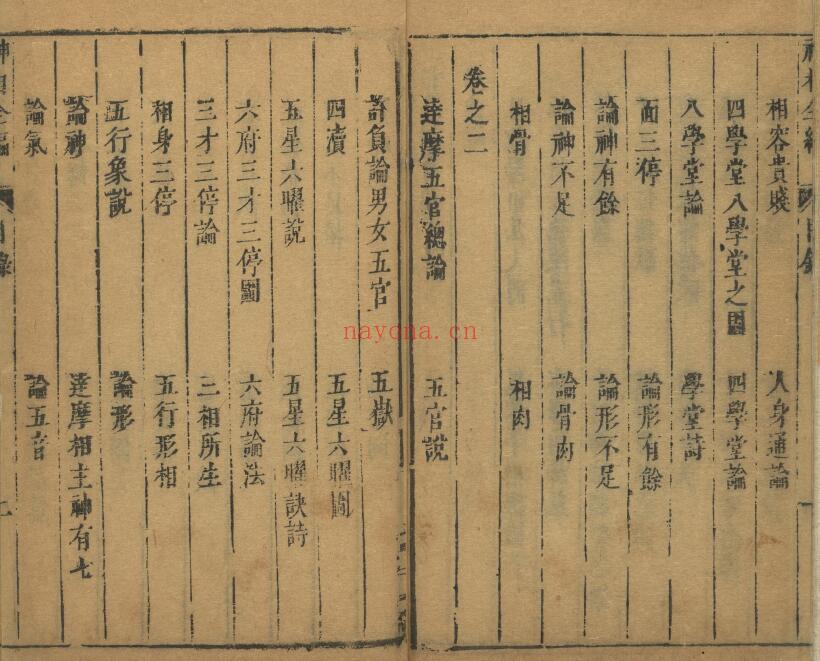 相容貴賤 人身通論
四學堂八學堂之圖 四學堂論
八學堂論 學堂詩
面三停 論形有餘
論神有餘 論形不足
論神不足 論骨肉
相骨 相肉
卷之二
達摩五官總論 五官說
許負論男女五官 五嶽
四瀆 五星六曜圖
五星六曜說 五星六曜訣詩
六府三才三停圖 六府論法
三才三停論 三相所生
相身三停 五行形相
五行象說 論形
論神 達摩相主神有七
論氣 論五音
nayona.cn